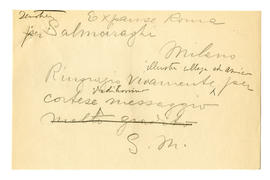 Expansé Roma
per Salmoiraghi
Milano
illustre collega ed amico
Ringrazio vivamente per
cortese messaggio
molto gradito
G. M.